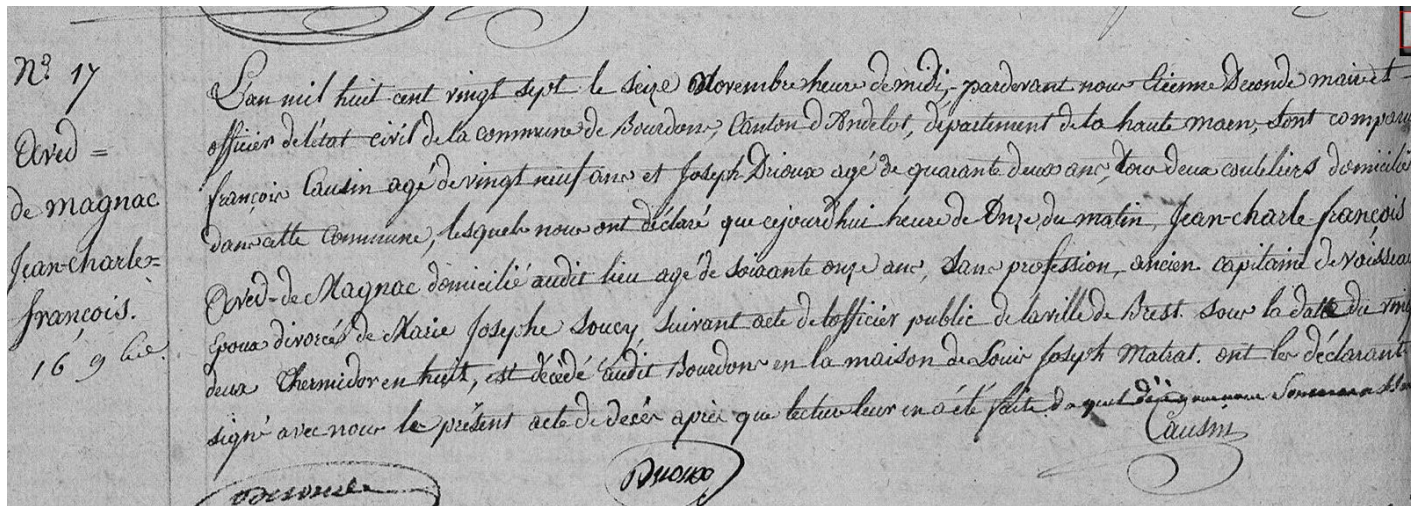 N.° 17
Aved =
de Magnac
Jean-charles=
françois.
16 9bre.
L'an mil huit cent vingt sept le seize Novembre heure de midi, pardevant nous Etienne Deconde maire et
officier de létat civil de la commune de Bourdons, Canton d'Andelot, département de la haute marn, sont comparu
françois Causin agé de vingt neuf ans et Joseph Drioux agé de quarante deux ans, tous deux couteliers domicilié
dans cette commune, lesquels nous ont déclaré que cejourd'hui heure de Onze du matin, Jean-charle-françois
Aved-de Magnac domicilié audit lieu agé de soixante onze ans, sans profession, ancien capitaine de vaisseau
époux divorcés de Marie Josephe Soucy suivant acte de lofficier public de la ville de Brest sous la datte du vingt
deux thermidor en huit, est décédé audit Bourdons en la maison de Louis Joseph Matrat. ont les déclarant
signé avec nous le présent acte de decès après que lecture leur en a été faite.
Causin
Drioux